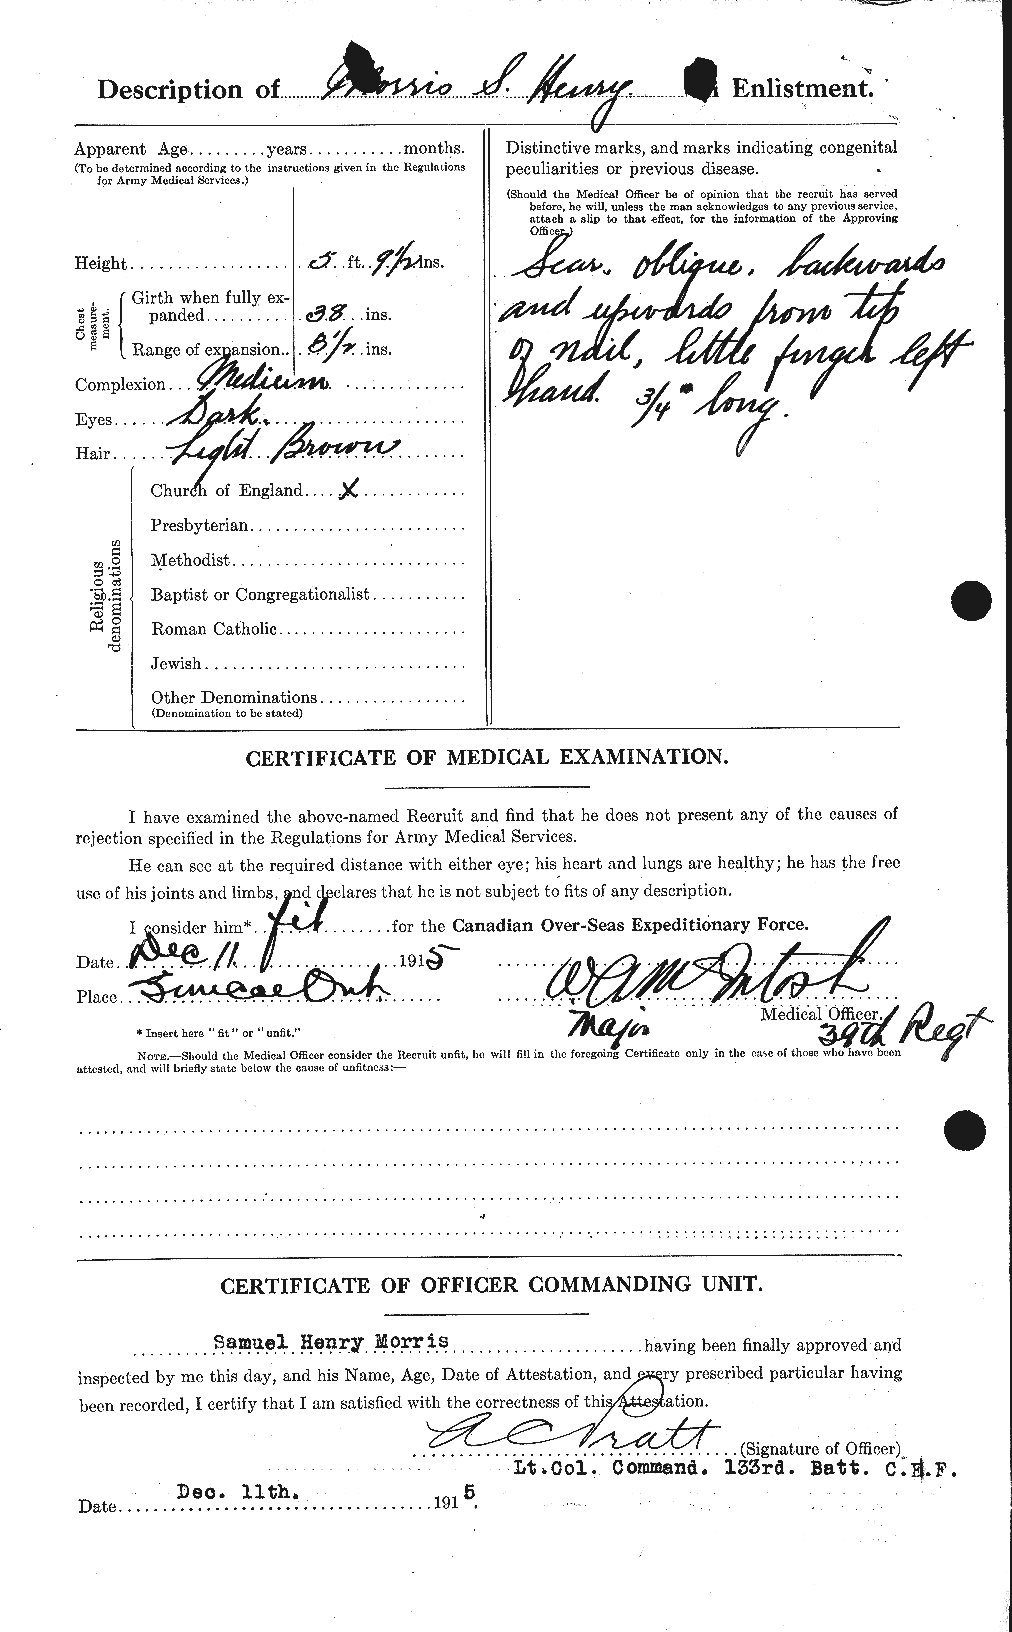 Description of Morris S. Henry Enlistment.
Apparent Age.........years...........months.
(To be determined according to the instructions given in the Regulations
for Army Medical Services.)
Height.................. 5 ft. 9 1/2 ins.
Chest measurement.
Girth when fully ex-
panded.......... 38 ins.
Range of expansion.. 3 1/2 ins.
Complexion... Medium
Eyes...... Dark.
Hair...... Light Brown
Religious denominations
Church of England.... X
Presbyterian
Methodist
Baptist or Congregationalist
Roman Catholic
Jewish
Other Denominations
(Denomination to be stated)
Distinctive marks, and marks indicating congenital
peculiarities or previous disease.
(Should the Medical Officer be of opinion that the recruit has served
before, he will, unless the man acknowledges to any previous service,
attach a slip to that effect, for the information of the Approving
Officer.)
Scar. oblique. backwards
and upwards from tip
of nail, little finger left
hand. 3/4" long.
CERTIFICATE OF MEDICAL EXAMINATION.
I have examined the above-named Recruit and find that he does not present any of the causes of
rejection specified in the Regulations for Army Medical Services.
He can see at the required distance with either eye; his heart and lungs are healthy; he has the free
use of his joints and limbs, and declares that he is not subject to fits of any description.
I consider him* fit for the Canadian Over-Seas Expeditionary Force.
Date Dec 11 1915
Place Simcoe Ont. W A McIntosh
Medical Officer.
Major 39th Regt
* Insert here "fit" or "unfit."
NOTE.—Should the Medical Officer consider the Recruit unfit, he will fill in the foregoing Certificate only in the case of those who have been
attested, and will briefly state below the cause of unfitness:—
CERTIFICATE OF OFFICER COMMANDING UNIT.
Samuel Henry Morris having been finally approved and
inspected by me this day, and his Name, Age, Date of Attestation, and every prescribed particular having
been recorded, I certify that I am satisfied with the correctness of this Attestation.
A C Pratt (Signature of Officer)
Lt.Col. Command. 133rd. Batt. C.E.F.
Date Dec. 11th. 1915.